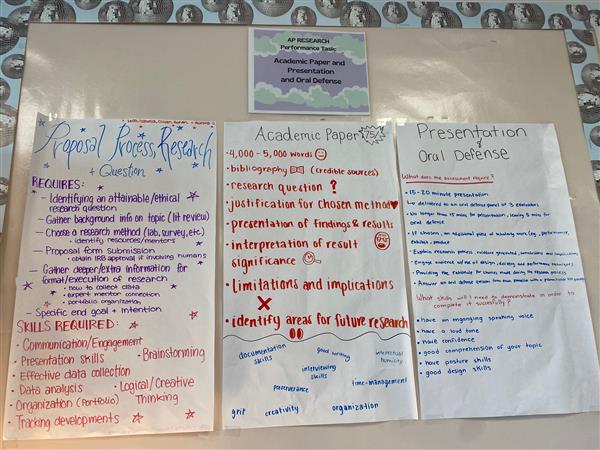 AP RESEARCH
Performance Task:
Academic Paper and
Presentation
and Oral Defense
Proposal Process, Research
+ Question
REQUIRES:
— Identifying an attainable/ethical
research question
— Gather background info on topic (lit review)
— Choose a research method (lab, survey, etc.)
• identify resources/mentors
— Proposal form submission
• obtain IRB approval if involving humans
— Gather deeper/extra information for
format/execution of research
• how to collect data
• expert mentor connection
• portfolio organization
— Specific end goal + intention
SKILLS REQUIRED:
• Communication/Engagement
• Presentation skills
• Brainstorming
• Effective data collection
• Data analysis
• Logical/Creative
Thinking
• Organization (Portfolio)
• Tracking developments
Academic Paper
75%
• 4,000 - 5,000 words
• bibliography (credible sources)
• research question ?
• justification for chosen method
• presentation of findings & results
• interpretation of result
significance
• Limitations and implications
• identify areas for future research
documentation
skills
good writing
intellectual
humility
interviewing
skills
perseverance
time-management
grit
creativity
organization
Presentation
&
Oral Defense
What does the assessment require?
• 15-20 minute presentation
delivered to an oral defense panel of 3 evaluators
• No longer than 15 mins for presentation, leaving 5 mins for
oral defense
• If chosen, an additional piece of scholarly work (e.g., performance,
exhibit, product
• Explain research process,
• Engage audience w/ use of design, delivery and performance techniques
• Providing the rationale for choices made during the research process
• Answer an oral defense
What skills will I need to demonstrate in order to
complete it successfully?
• have an engaging speaking voice
• have a loud tone
• have confidence
• good comprehension of your topic
• have posture skills
• good design skills